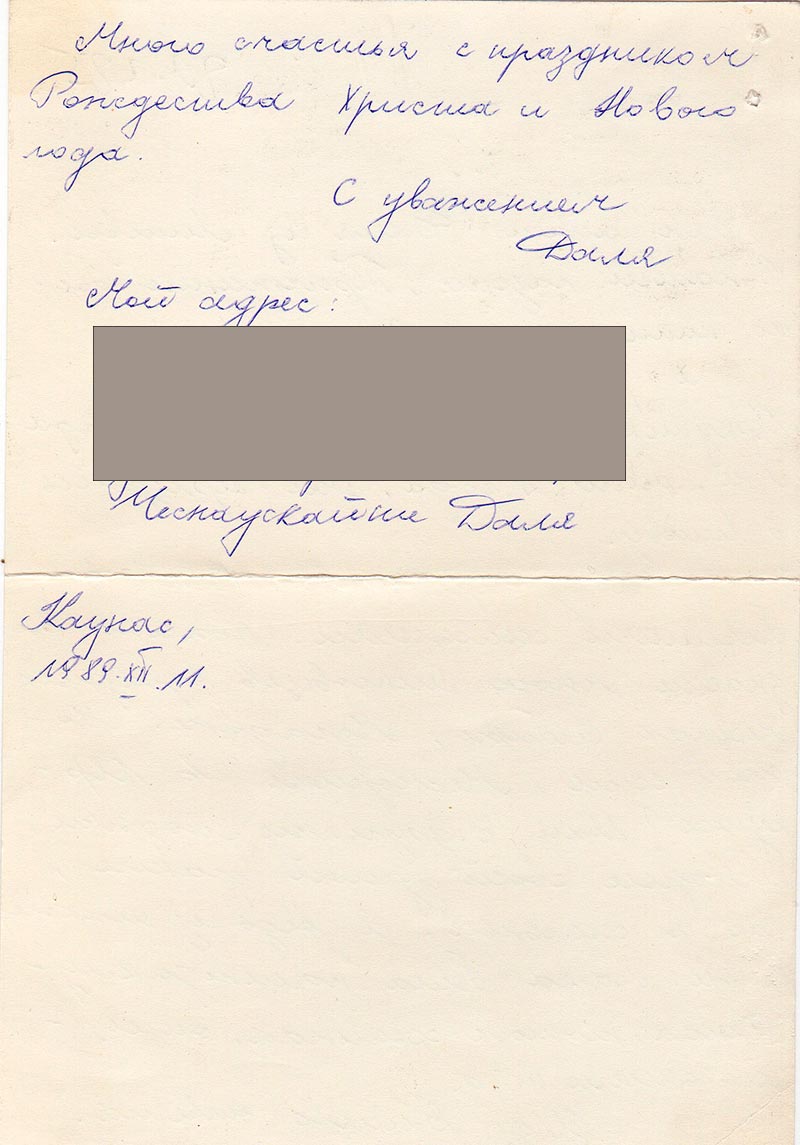 Много счастья с праздником
Рождества Христа и Нового
года.
С уважением
Даля
Мой адрес:
Меснаускайте Даля
Каунас,
1989.XII.11.